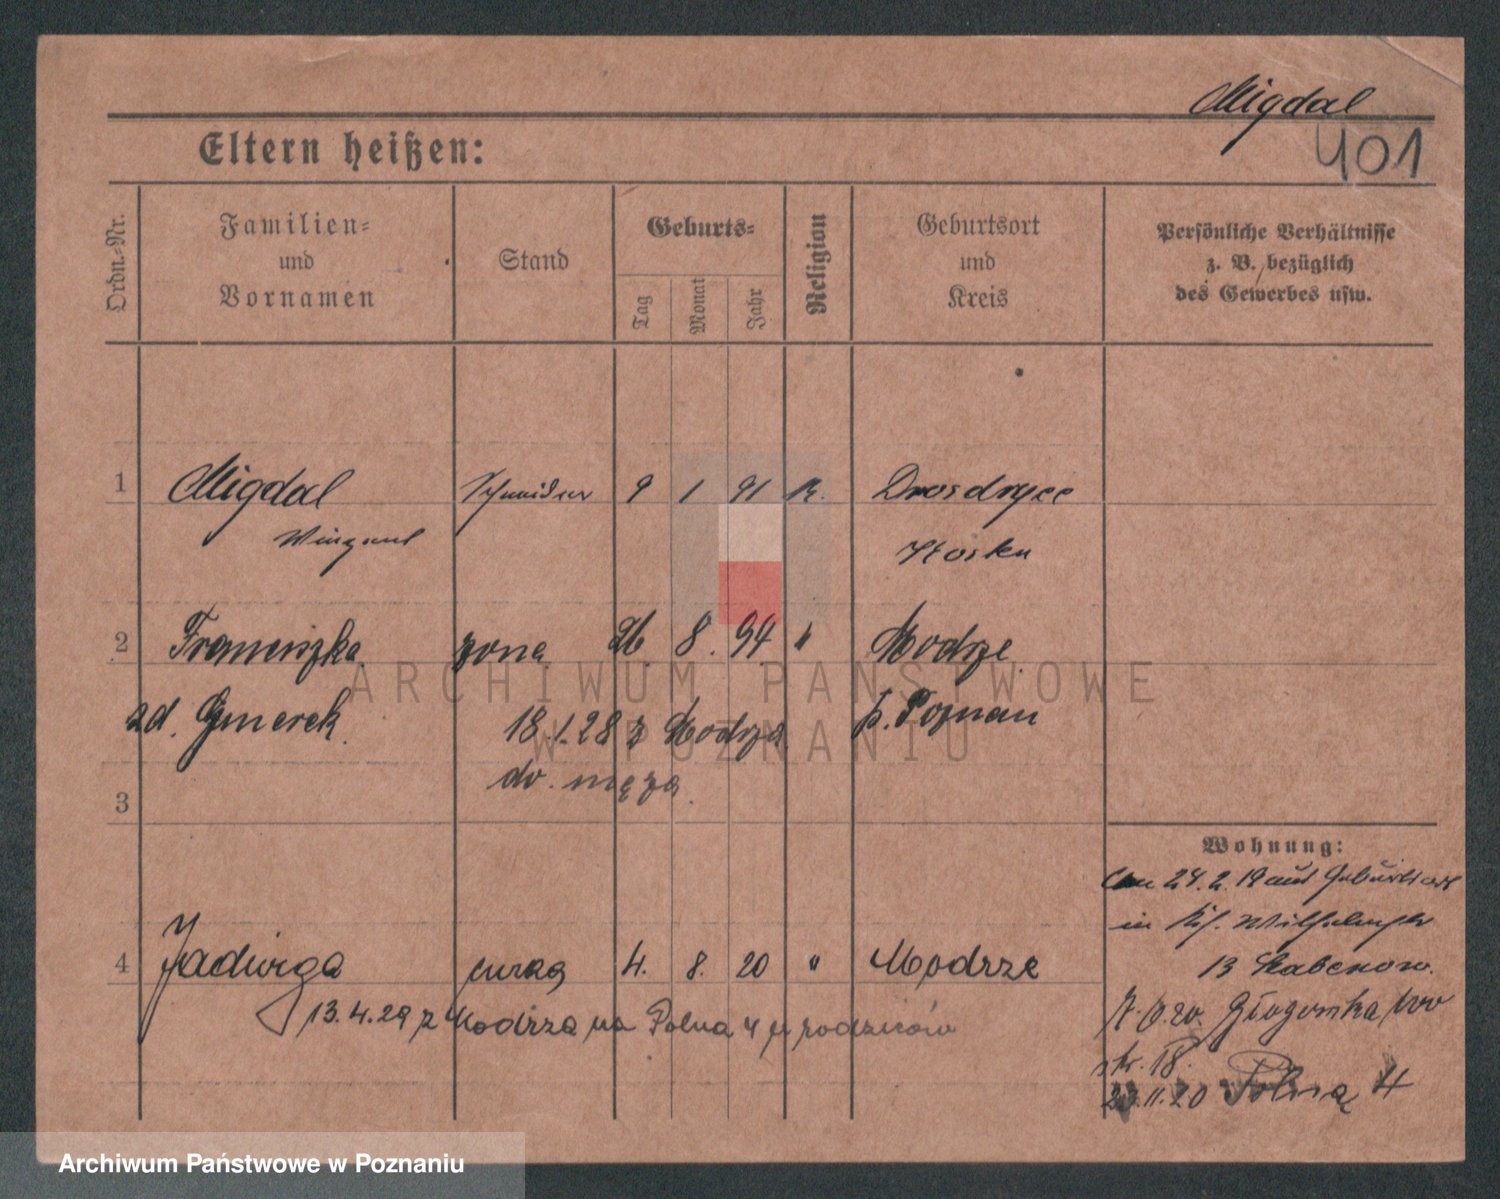 Migdal
401
Eltern heißen:
Ordn.-Nr.
Familien-
und
Vornamen
Stand
Geburts-
Tag
Monat
Jahr
Religion
Geburtsort
und
Kreis
Persönliche Verhältnisse
z. B. bezüglich
des Gewerbes usw.
1 Migdal Schneider 9 1 91 K.
2 Franciszka żona 26 8. 94 " Modrze
zd. Gmerek p. Poznań
18.1.28 z Modrza
do męża.
3
Wohnung:
24.2.19 aus
in
13
4 Jadwiga córka 4. 8. 20 " Modrze
13.4.29 z Modrza na Polna 4 u rodziców
Głogowska
Polna 4
ARCHIWUM PAŃSTWOWE
W POZNANIU
Archiwum Państwowe w Poznaniu